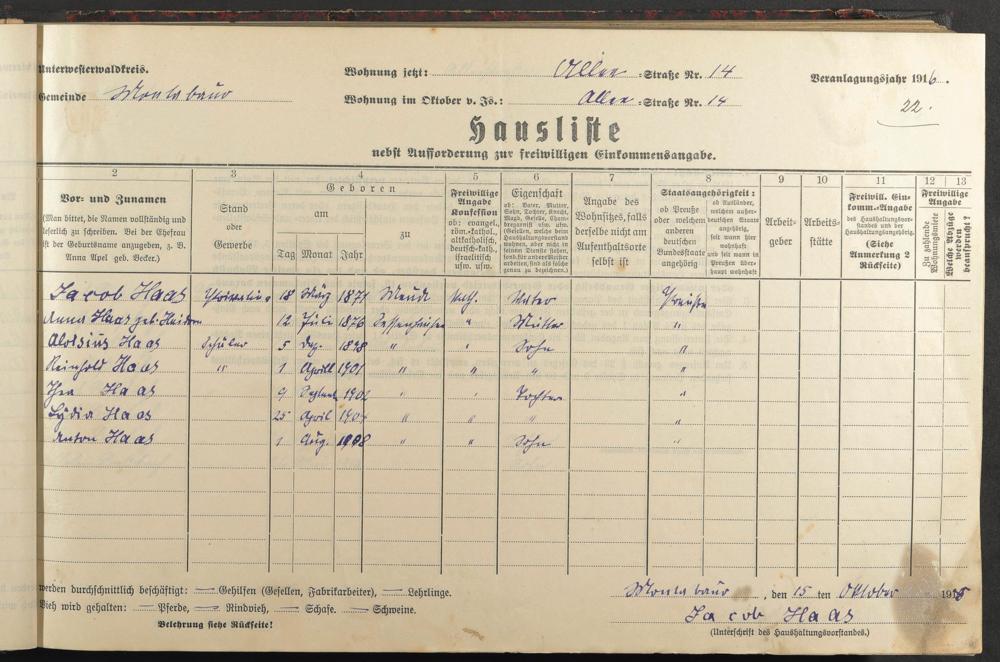 Unterwesterwaldkreis.
Wohnung jetzt: Allee -Straße Nr. 14
Veranlagungsjahr 1916.
Gemeinde Montabaur
Wohnung im Oktober v. Js.: Allee -Straße Nr. 14
22.
Hausliste
nebst Aufforderung zur freiwilligen Einkommensangabe.
2 3 4 5 6 7 8 9 10 11 12 13
Vor- und Zunamen
(Man bittet, die Namen vollständig und
leserlich zu schreiben. Bei der Ehefrau
ist der Geburtsname anzugeben, z. B.
Anna Apel geb. Becker.)
Stand
oder
Gewerbe
Geboren
am
Tag Monat Jahr
zu
Freiwillige
Angabe
Konfession
ob: evangel.,
röm.-kathol.,
altkatholisch,
deutsch-kath.,
israelitisch
usw. usw.
Eigenschaft
ob: Vater, Mutter,
Sohn, Tochter, Knecht,
Magd, Geselle, Cham-
bregarnist usw. usw.
Angabe des
Wohnsitzes, falls
derselbe nicht am
Aufenthaltsorte
selbst ist
Staatsangehörigkeit:
ob Preuße
oder welchem
anderen
deutschen
Bundesstaate
angehörig
ob Ausländer,
welchem außer-
deutschen Staate
angehörig,
seit wann hier
wohnhaft
und seit wann in
Preußen über-
haupt wohnhaft
Arbeit-
geber
Arbeits-
stätte
Freiwill. Ein-
komm.-Angabe
des Haushaltungsvor-
standes und der
Haushaltungsangehörig.
(Siehe
Anmerkung 2
Rückseite)
Freiwillige
Angabe
Zu zahlende
Wohnungsmiete
Welche Abzüge
werden
beansprucht?
Jacob Haas 18 März 1871 Kath. Vater Preuße
Anna Haas geb. 12 Juli 1876 " Mutter "
Aloisius Haas Schüler 5 Dez. 1898 " " Sohn "
Reinhold Haas " 1 April 1901 " " " "
Thea Haas 9 Septemb. " " Tochter "
Lydia Haas 25 April 1904 " " " "
Anton Haas 1 Aug. 1908 " " Sohn "
werden durchschnittlich beschäftigt: — Gehilfen (Gesellen, Fabrikarbeiter), — Lehrlinge.
Montabaur, den 15 ten Oktober 1915
Vieh wird gehalten: — Pferde, — Rindvieh, — Schafe. — Schweine.
Jacob Haas
Belehrung siehe Rückseite!
(Unterschrift des Haushaltungsvorstandes.)